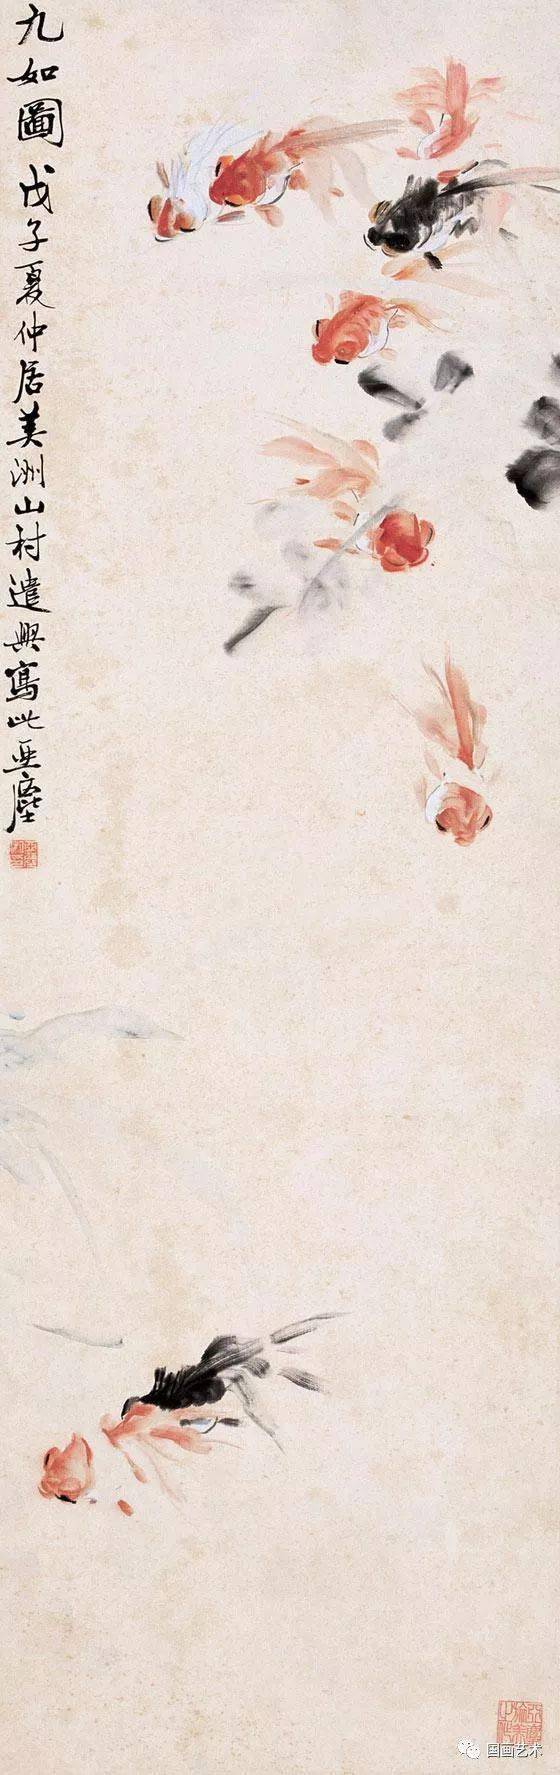 九如圖 戊子夏仲居美洲山村遣興寫此亞塵
国画艺术